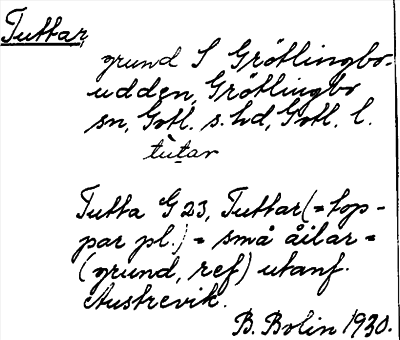 Tuttar,
grund S Grötlingbo-
udden, Grötlingbo
sn, Gotl. s. hd, Gotl. l.
tùtar
Tutta G 23, Tuttar (= top-
par pl.) = små åilar =
(grund, ref) utanf.
Austrevik.
B. Bolin 1930.